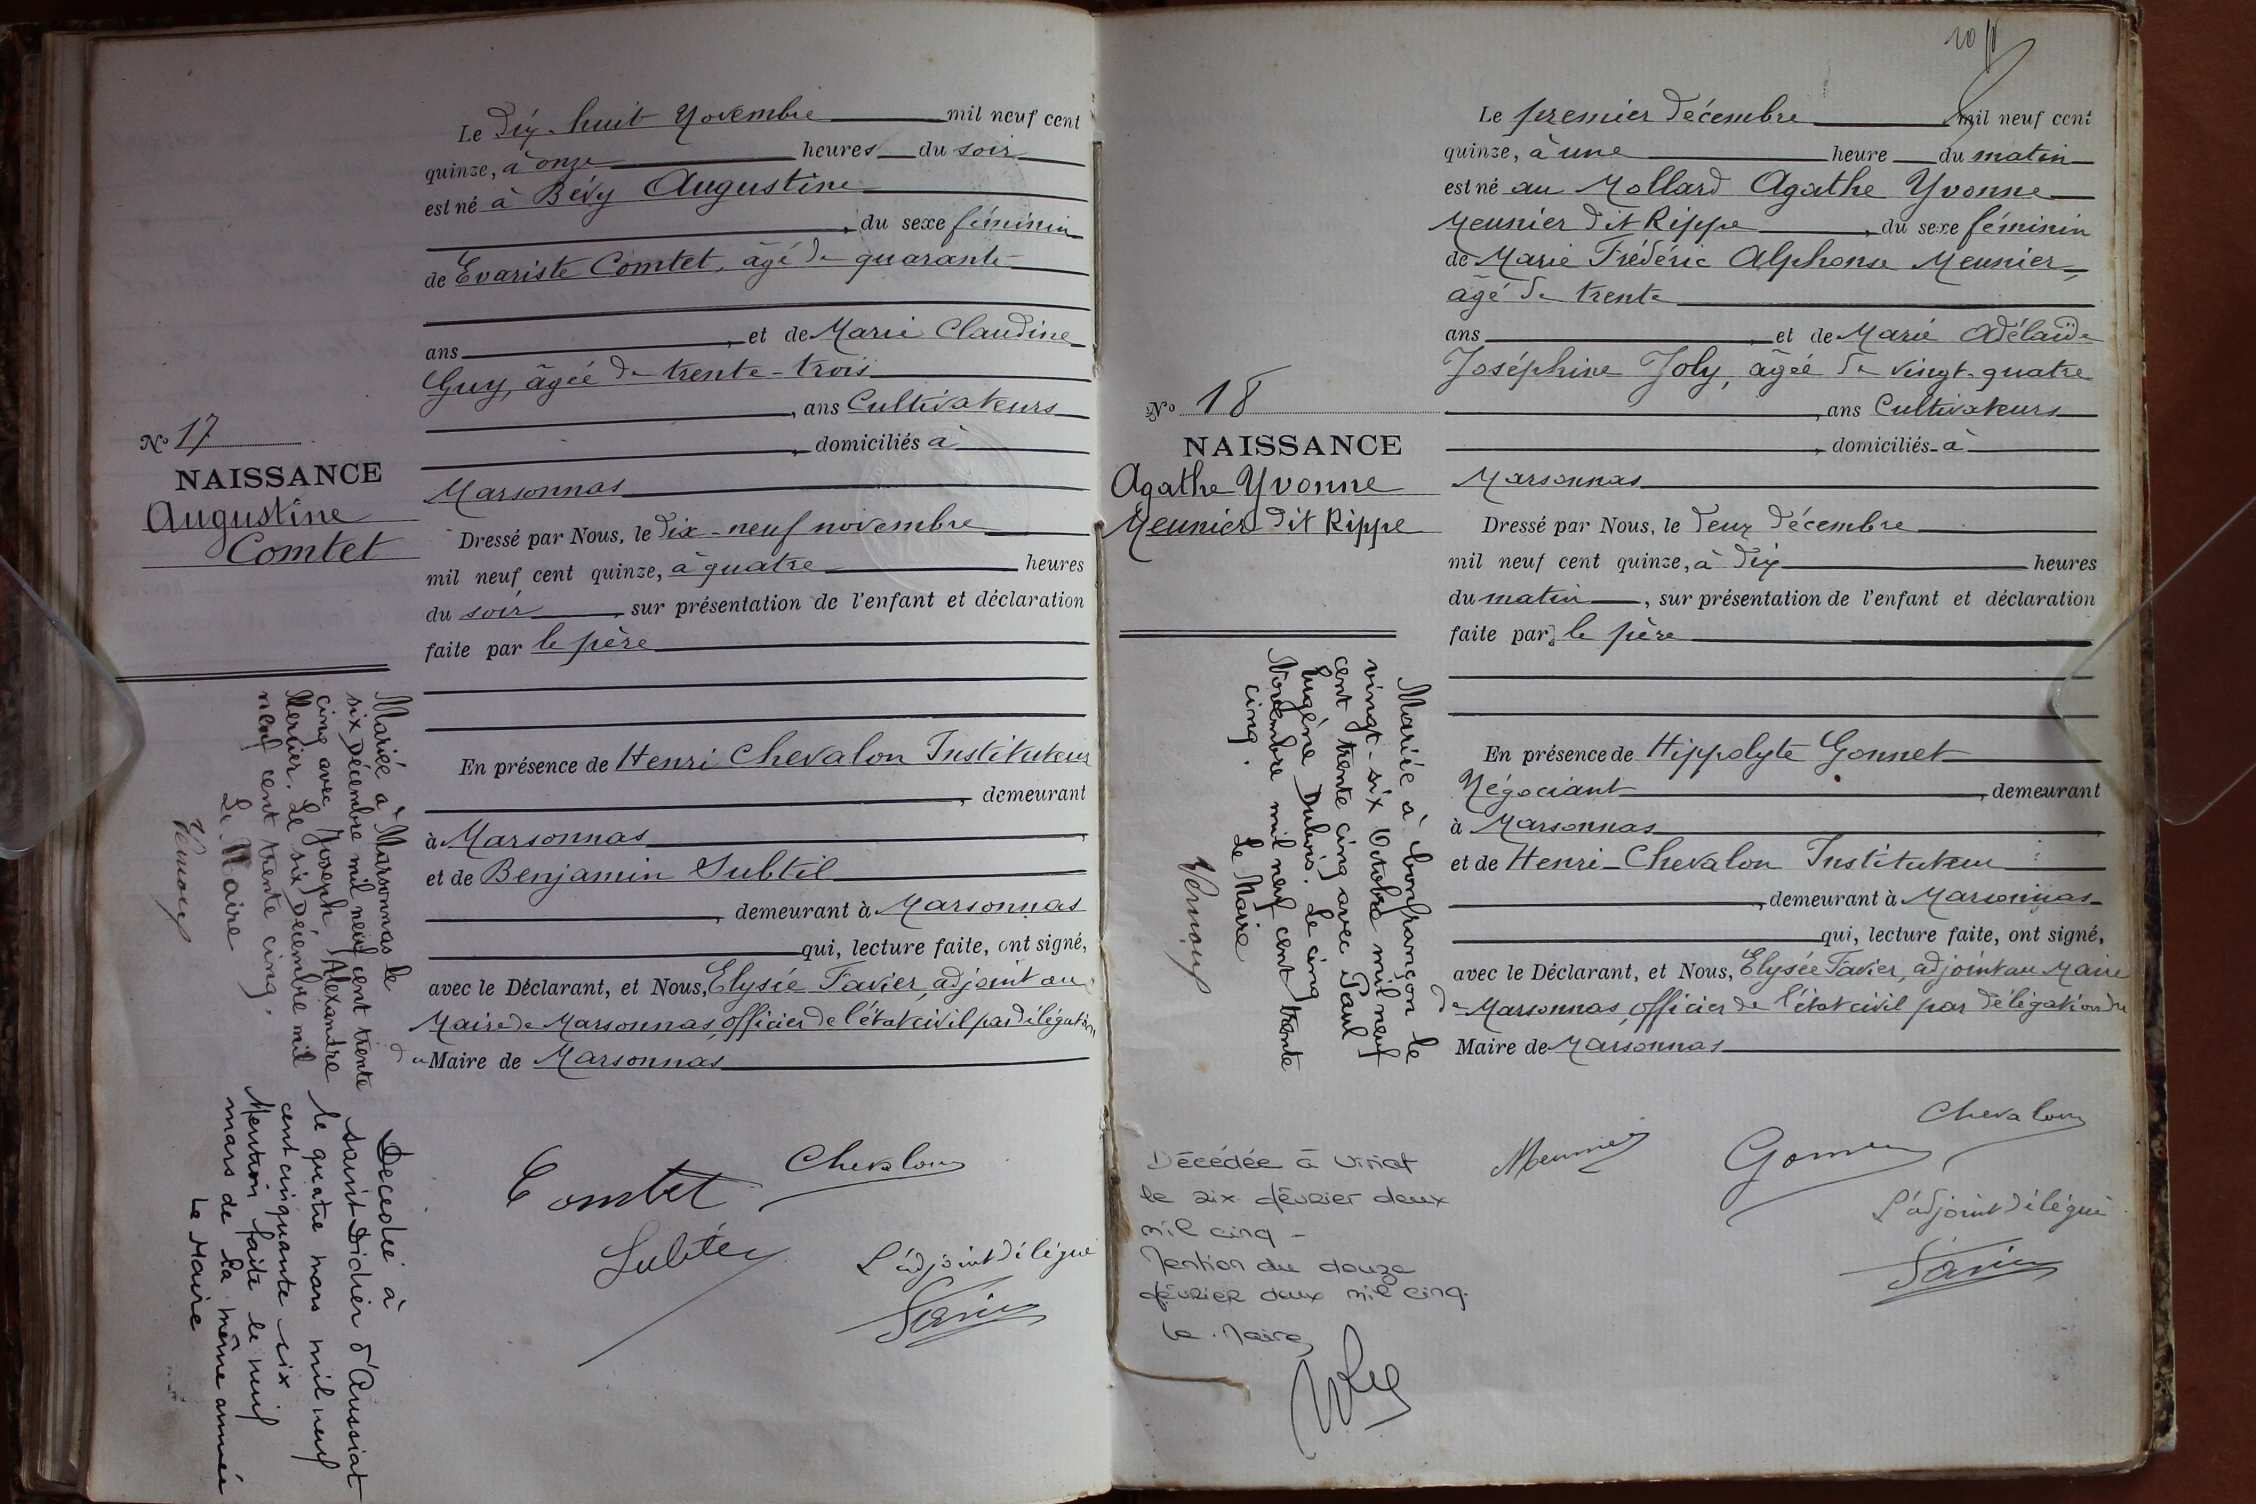 Le dix-huit Novembre mil neuf cent
quinze, à onze heures du soir
est né à Bévy Augustine
, du sexe féminin
de Evariste Comtet, âgé de quarante
ans, et de Marie Claudine
Guy, âgée de trente-trois
, ans Cultivateurs
, domiciliés à
Marsonnas
Dressé par Nous, le dix-neuf novembre
mil neuf cent quinze, à quatre heures
du soir, sur présentation de l'enfant et déclaration
faite par le père
En présence de Henri Chevalon Instituteur
, demeurant
à Marsonnas
et de Benjamin Subtil
, demeurant à Marsonnas
qui, lecture faite, ont signé,
avec le Déclarant, et Nous, Elysée Favier, adjoint au
Maire de Marsonnas, officier de l'état civil par délégation
du Maire de Marsonnas
Comtet
Chevalon
Subtil
L'adjoint délégué
Favier
No 17
NAISSANCE
Augustine
Comtet
Mariée à Marsonnas le
six Décembre mil neuf cent trente
cinq avec Joseph Alexandre
Mercier. Le six Décembre mil
neuf cent trente cinq.
Le Maire
Décédée à
Saint Didier d'Aussiat
le quatre mars mil neuf
cent cinquante six
Mention faite le neuf
mars de la même année
Le Maire
Le premier décembre mil neuf cent
quinze, à une heure du matin
est né au Mollard Agathe Yvonne
Meunier dit Rippe, du sexe féminin
de Marie Frédéric Alphonse Meunier,
âgé de trente
ans, et de Marie Adélaïde
Joséphine Joly, âgée de vingt-quatre
, ans Cultivateurs
, domiciliés à
Marsonnas
Dressé par Nous, le deux décembre
mil neuf cent quinze, à dix heures
du matin, sur présentation de l'enfant et déclaration
faite par le père
En présence de Hippolyte Gonnet
Négociant, demeurant
à Marsonnas
et de Henri Chevalon Instituteur
, demeurant à Marsonnas
qui, lecture faite, ont signé,
avec le Déclarant, et Nous, Elysée Favier, adjoint au Maire
de Marsonnas, officier de l'état civil par délégation du
Maire de Marsonnas
Meunier
Gonnet
Chevalon
L'adjoint délégué
Favier
No 18
NAISSANCE
Agathe Yvonne
Meunier dit Rippe
Mariée à Confrançon le
vingt-six Octobre mil neuf
cent trente cinq avec Paul
Eugène Dubois. Le cinq
Novembre mil neuf cent trente
cinq.
Le Maire
Décédée à Viriat
le six février deux
mil cinq -
Mention du douze
février deux mil cinq.
Le Maire